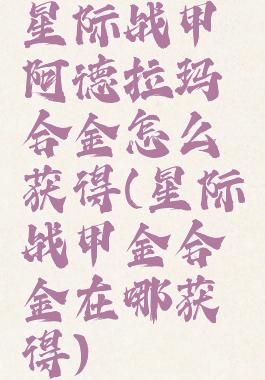 星际战甲
阿德拉玛
合金怎么
获得(星际
战甲金合
金在哪获
得)